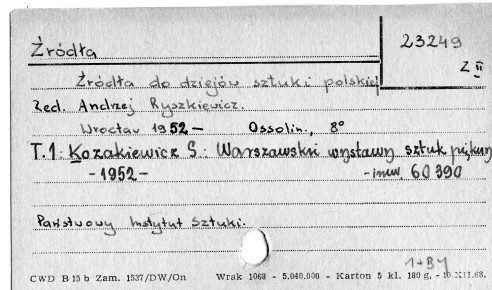 Źródła 23249
Z II
Źródła do dziejów sztuki polskiej
Red. Andrzej Ryszkiewicz.
Wrocław 1952 – Ossolin., 8°
T.1: Kozakiewicz S.: Warszawskie wystawy sztuk pięknych
- 1952 - - inw. 60390
Państwowy Instytut Sztuki.
1+B4
CWD B 15 b Zam. 1537/DW/On Wrak 1068 - 5.040.000 - Karton 5 kl. 180 g. - 10.XII.68.